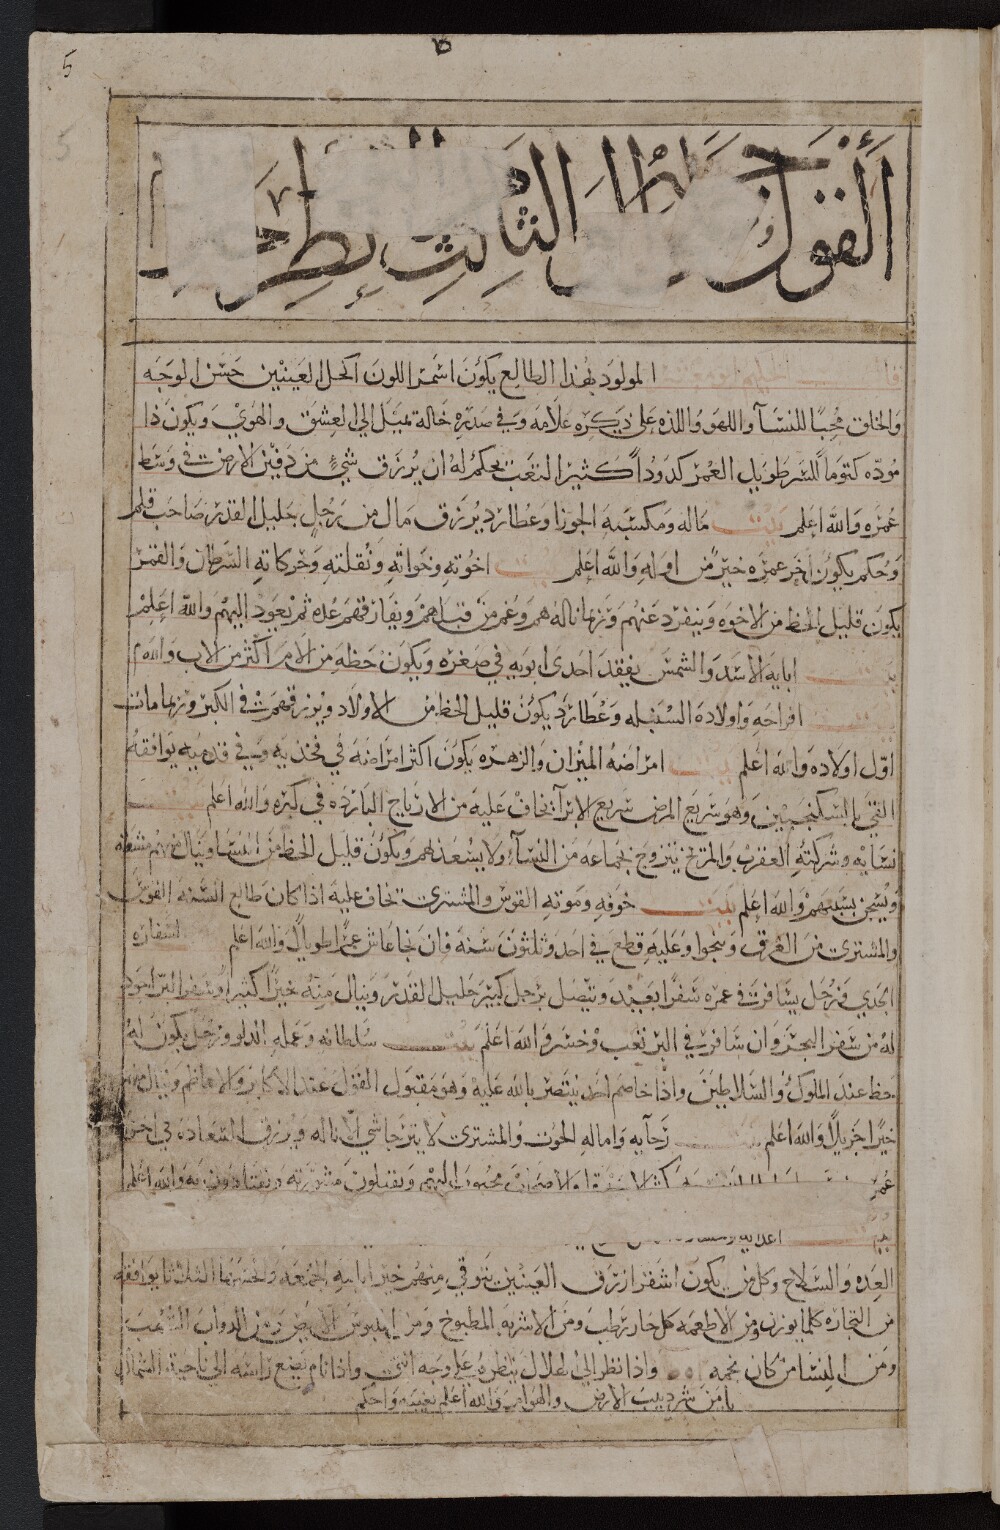 5
القول الثالث
المولود بهذا الطالع يكون اسمر اللون اكحل العينين حسن الوجه
والخلق محبا للنسآ واللهو واللذه على ذكره علامه وفي صدره خاله يميل الى العشق والهوي ويكون ذا
موده كتوما للسر طويل العمر كدودا كثير التعب يحكم له ان يرزق شيء من دفين الارض في وسط
عمره والله اعلم بيت ماله ومكسبه الجوزا وعطارد يرزق مال من رجل جليل القدر صاحب قلم
وحكم يكون اخر عمره خير من اوله والله اعلم بيت اخوته وخواته ونقلته وحركاته السرطان والقمر
يكون قليل الحظ من الاخوه وينفرد عنهم وربما ناله هم وغم من قبلهم ويفارقهم مده ثم يعود اليهم والله اعلم
ابايه الاسد والشمس يفقد احدى ابويه في صغره ويكون حظه من الام اكثر من الاب والله
افراحه واولاده السنبله وعطارد يكون قليل الحظ من الاولاد ويرزقهم في الكبر وربما مات
اول اولاده والله اعلم بيت امراضه الميزان والزهره يكون اكثر امراضه في فخديه وفي قدميه يوافقه
القي بالسكنجبين وهو سريع المرض سريع الابرآ يخاف عليه من الارياح البارده في كبره والله اعلم
نسايه وشركته العقرب والمريخ يتزوج بجماعه من النسآ ولا يسعد لهم ويكون قليل الحظ من النسا وينال منهم مشقه
ويسجن بسببهم والله اعلم بيت خوفه وموته القوس والمشتري يخاف عليه اذا كان طالع السنه القوس
والمشتري من الغرق وينجوا وعليه قطع في احد وثلثون سنه فان نجا عاش عمرا طويلا والله اعلم اسفاره
الجدي وزحل يسافر في عمره سفرا بعيد ويتصل برجل كبير جليل القدر وينال منه خيرا كثيرا وسفر البر اجود
له من سفر البحر وان سافر في البر تعب وخسر والله اعلم بيت سلطانه وعمله الدلو وزحل يكون له
حظ عند الملوك والسلاطين واذا خاصم احد ينتصر بالله عليه وهو مقبول القول عند الاكابر والاعاظم وينال منهم
خيرا جزيلا والله اعلم رجآيه واماله الحوت والمشتري لا يترجا شي الا ناله ويرزق السعاده في اخر
عمره محبوب اليهم ويقبلون مشورته ويقتادون به والله اعلم
بيت اعدايه
العده والسلاح وكل من يكون اشقر ازرق العينين يتوقي منهم خير ايامه الجمعه والثلاثا يوافقه
من التجاره كلما يوزن ومن الاطعمه كل حار رطب ومن الاشربه المطبوخ ومن الملبوس الابيض ومن الدواب
ومن النسا من كان نجمه واذا نظر الى الهلال ينظره على وجه انثى واذا نام يضع راسه الى ناحية الشمال
يامن شر دبيب الارض والهوام والله اعلم بغيبه واحكم